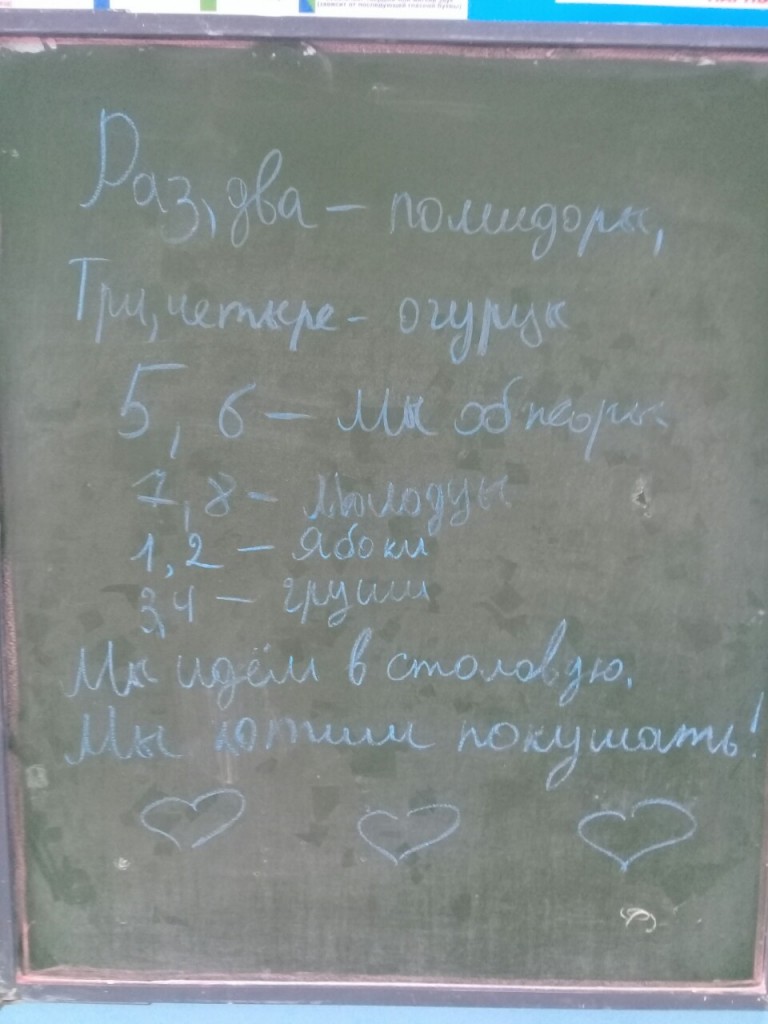 (зависит от последующей гласной буквы)
Раз, два – помидоры,
Три, четыре – огурцы
5, 6 – Мы обжоры
7, 8 – Молодцы
1, 2 – Яблоки
3, 4 – груши
Мы идём в столовую,
Мы хотим покушать!